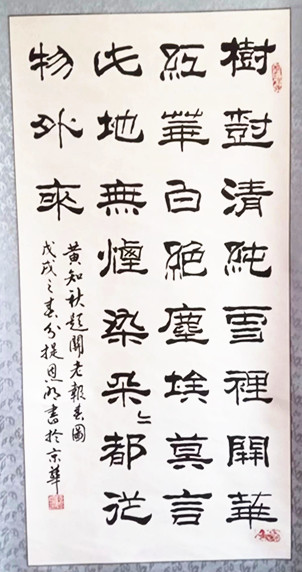 樹對清純雪裡開華
紅華白絕塵埃莫言
此地無煙染朵〻都從
物外來
黃知秋題關老報春圖
戊戌之春分提恩書於京華